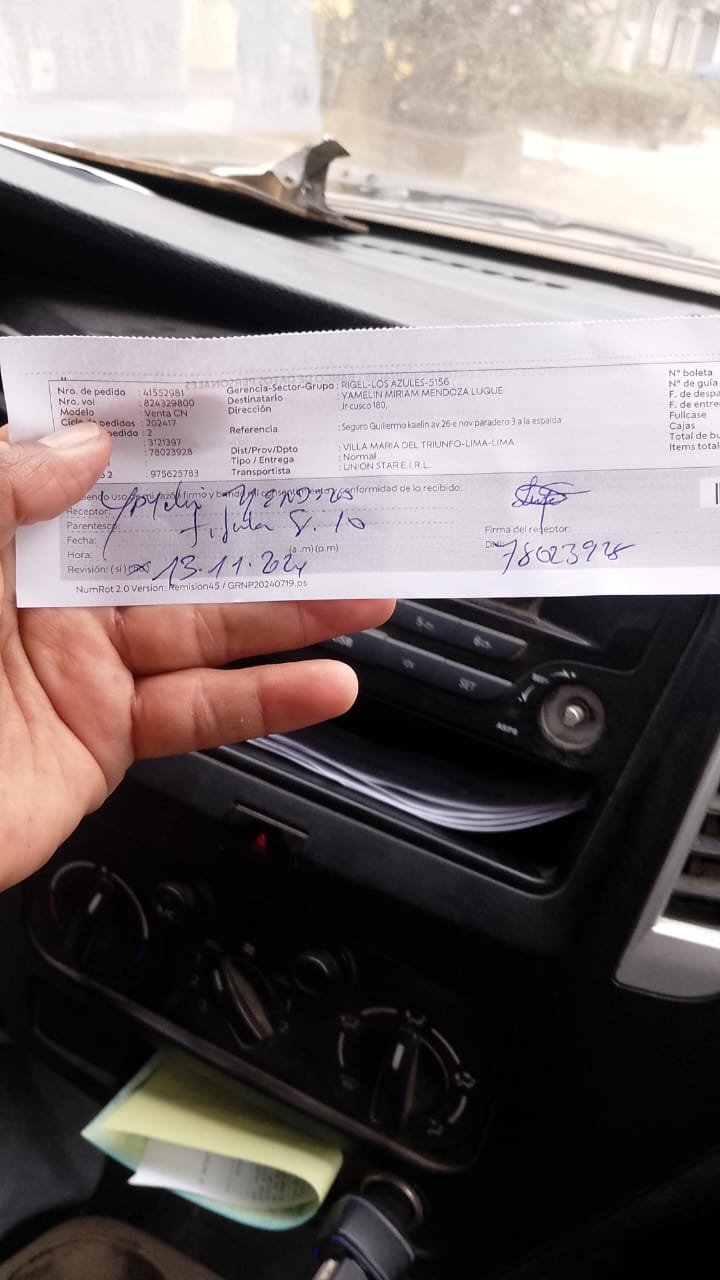 Nro. de pedido : 41552981
Nro. vol : 824329800
Modelo : Venta CN
pedidos : 202417
pedido : 2
: 3121397
: 78023928
2 : 975625783
Gerencia-Sector-Grupo : RIGEL-LOS AZULES-5156
Destinatario : YAMELIN MIRIAM MENDOZA LUQUE
Dirección : Jr cusco 180,
Referencia : Seguro Guillermo kaelin av 26 e nov paradero 3 a la espalda
Dist/Prov/Dpto : VILLA MARIA DEL TRIUNFO-LIMA-LIMA
Tipo / Entrega : Normal
Transportista : UNION STAR E.I.R.L.
N° boleta
N° de guía
F. de despa
F. de entre
Fullcase
Cajas
Total de bu
Items total
uso razón firmo y conformidad de lo recibido:
Receptor:
Parentesco:
Fecha:
Hora: (a.m)(p.m)
Revisión: (si) 13.11.2024
Firma del receptor:
DNI: 78023928
NumRot 2.0 Version: Remision45 / GRNP20240719.ps
USB
5
6
SET